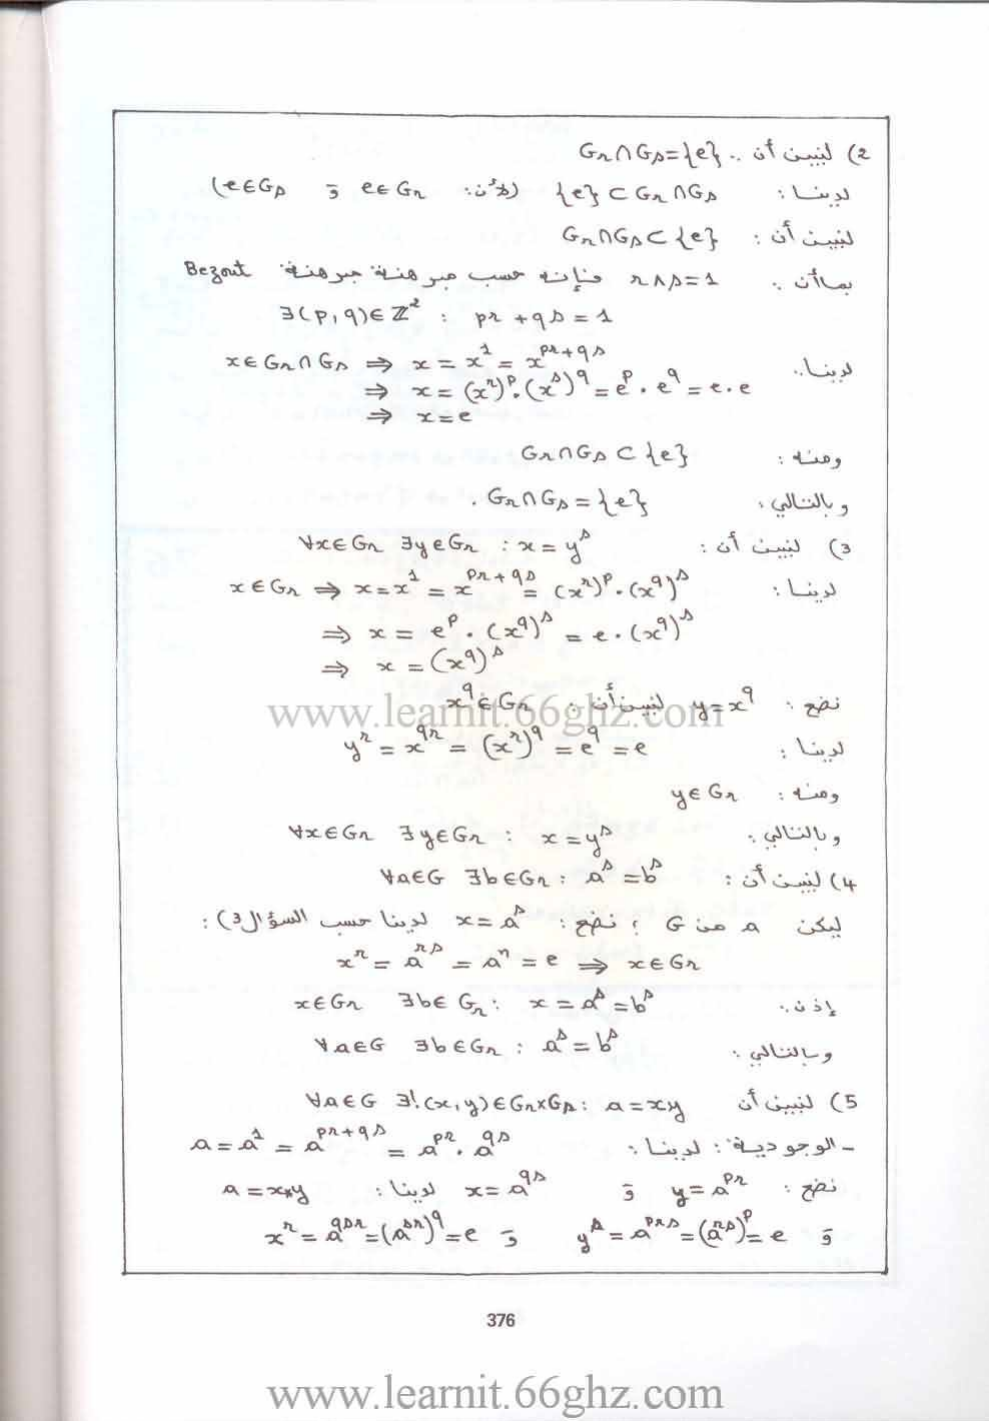 2) لنبين أن : G_r ∩ G_s = {e}
لدينا : {e} ⊂ G_r ∩ G_s (لأن: e ∈ G_r و e ∈ G_s)
لنبين أن : G_r ∩ G_s ⊂ {e}
بما أن : r ∧ s = 1 فإنه حسب مبرهنة مبرهنة Bezout
∃(p,q) ∈ ℤ² : pr + qs = 1
لدينا : x ∈ G_r ∩ G_s ⇒ x = x^1 = x^{pr+qs}
⇒ x = (x^r)^p . (x^s)^q = e^p . e^q = e . e
⇒ x = e
ومنه : G_r ∩ G_s ⊂ {e}
وبالتالي : G_r ∩ G_s = {e} .
3) لنبين أن : ∀x ∈ G_r ∃y ∈ G_r : x = y^s
لدينا : x ∈ G_r ⇒ x = x^1 = x^{pr+qs} = (x^r)^p . (x^q)^s
⇒ x = e^p . (x^q)^s = e . (x^q)^s
⇒ x = (x^q)^s
نضع : y = x^q لنبين أن : x^q ∈ G_r
www.learnit.66ghz.com
لدينا : y^r = x^{qr} = (x^r)^q = e^q = e
ومنه : y ∈ G_r
وبالتالي : ∀x ∈ G_r ∃y ∈ G_r : x = y^s
4) لنبين أن : ∀a ∈ G ∃b ∈ G_r : a^s = b^s
ليكن a من G ؛ نضع : x = a^s لدينا حسب السؤال 3) :
x^r = a^{rs} = a^n = e ⇒ x ∈ G_r
إذن : x ∈ G_r ∃b ∈ G_r : x = a^s = b^s
وبالتالي : ∀a ∈ G ∃b ∈ G_r : a^s = b^s
5) لنبين أن ∀a ∈ G ∃!(x,y) ∈ G_r×G_s : a = xy
- الوجودية : لدينا : a = a^1 = a^{pr+qs} = a^{pr} . a^{qs}
نضع : y = a^{pr} و x = a^{qs} لدينا : a = x*y
و y^s = a^{prs} = (a^{rs})^p = e و x^r = a^{qsr} = (a^{sr})^q = e
376
www.learnit.66ghz.com